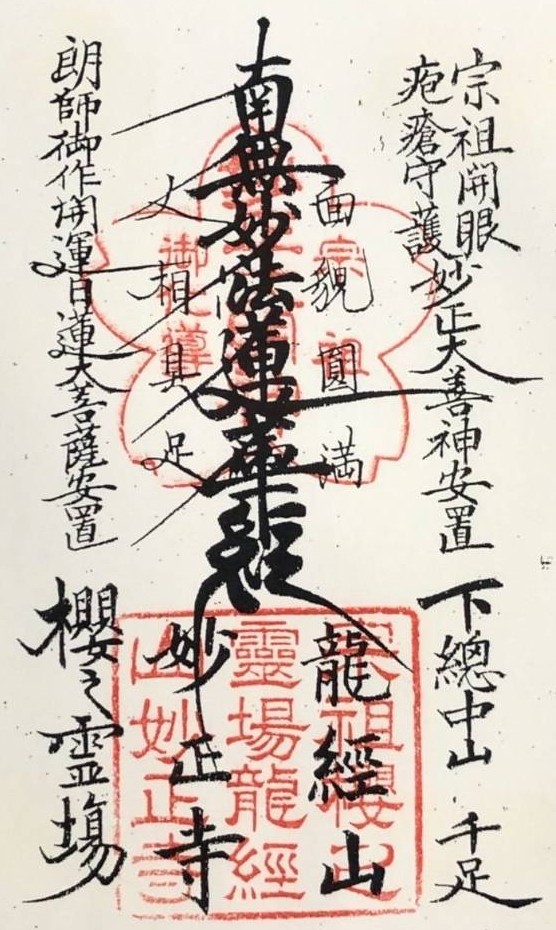 宗祖開眼
疱瘡守護妙正大善神安置
下總中山 千足
面貌圓満
龍經山
南無妙法蓮華経
丈相具足
妙正寺
朗師御作開運日蓮大菩薩安置
櫻之霊場
宗祖
御化導
宗祖櫻之
靈場龍經
山妙正寺